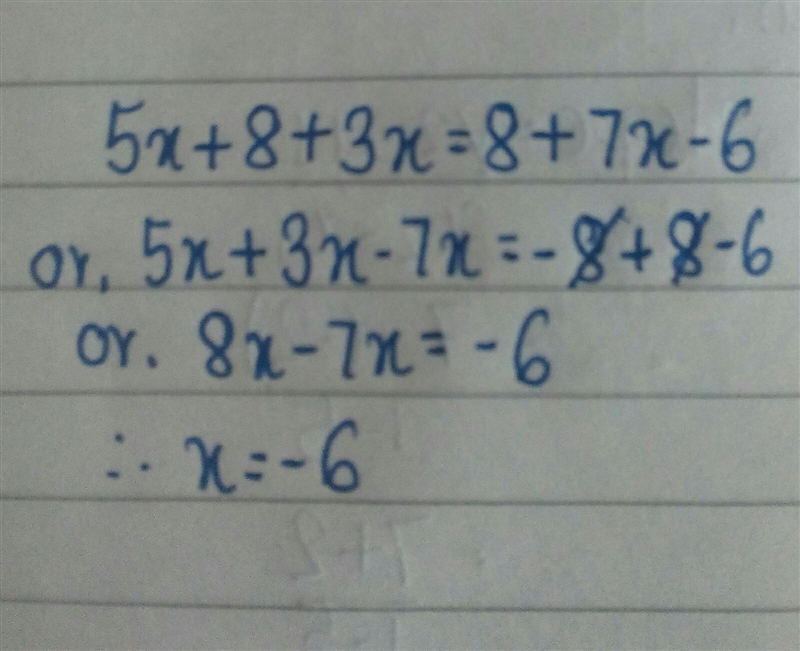 5x+8+3x=8+7x-6
or, 5x+3x-7x=-8+8-6
or. 8x-7x=-6
∴ x=-6